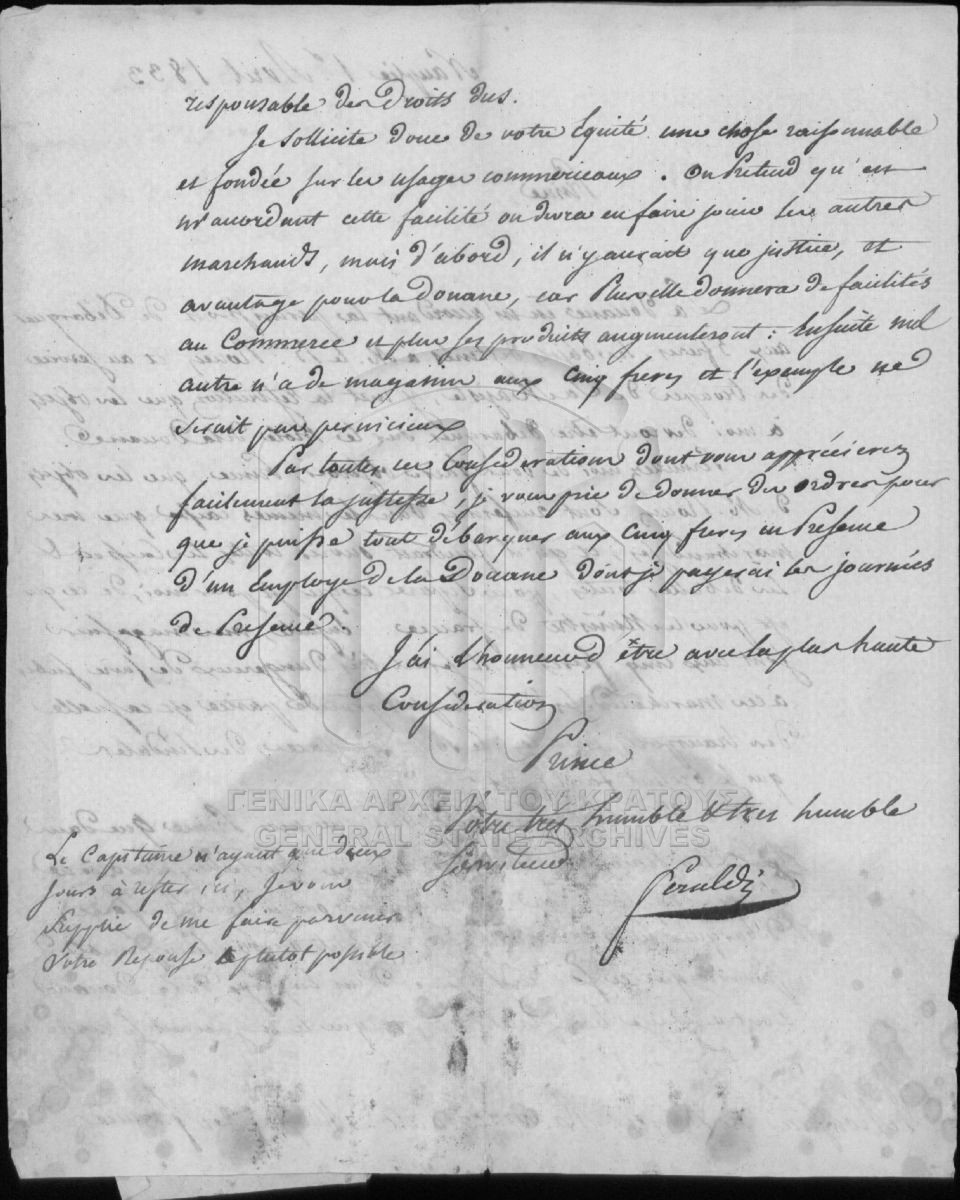 responsable des Droits dus.
Je sollicite donc de votre Equité une chose raisonnable
et fondée sur les usages commerciaux. On Pretend qu'en
m'accordant cette facilité on devra en faire jouir les autres
marchands, mais d'abord, il n'y aurait que justice, et
avantage pour la Douane, car Plus elle donnera de facilités
au Commerce et plus ses produits augmenteront : Ensuite nul
autre n'a de magasin aux Cinq freres et l'exemple ne
serait pas pernicieux
Par toutes ces Considerations dont vous apprécierez
facilement la justesse, je vous prie de donner des ordres pour
que je puisse tout débarquer aux Cinq freres en Presence
d'un Employe de la Douane dont je payerai les journées
de Presence.
J'ai l'honneur d'être avec la plus haute
Consideration
Prince
Votre très humble & tres humble
Serviteur
Peraldi
Le Capitaine n'ayant que deux
Jours à rester ici, Je vous
Supplie de me faire parvenir
Votre Reponse le plutot possible
ΓΕΝΙΚΑ ΑΡΧΕΙΑ ΤΟΥ ΚΡΑΤΟΥΣ
GENERAL STATE ARCHIVES